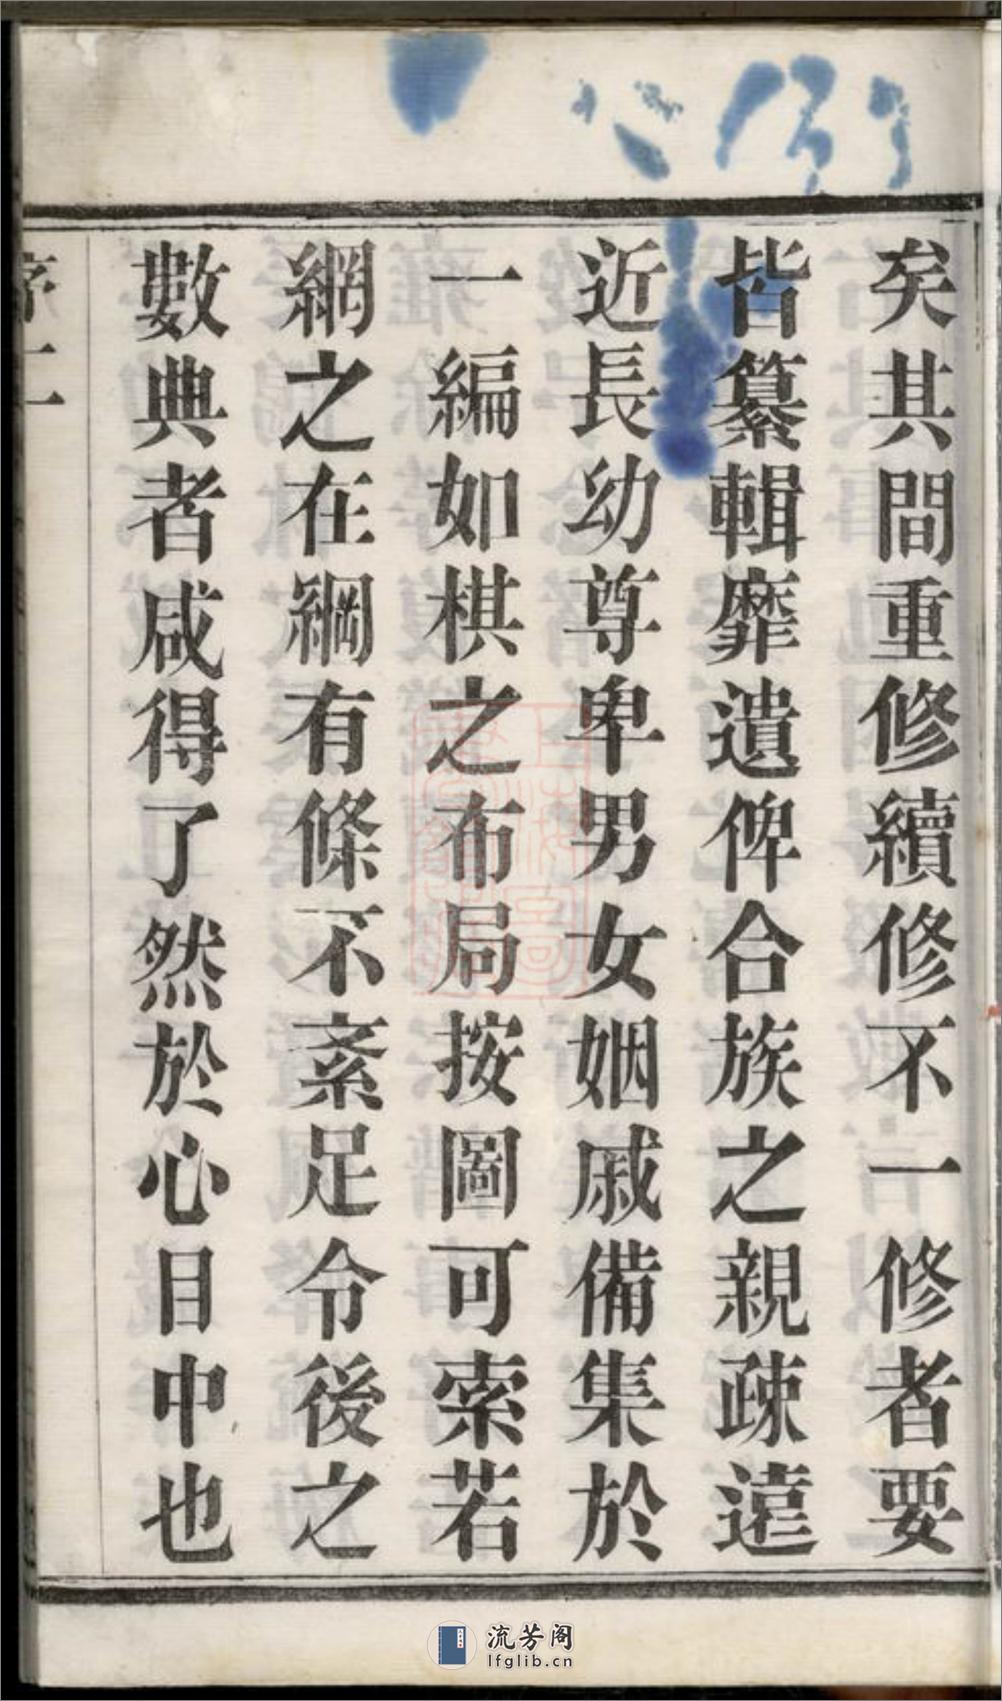 矣其間重修續修不一修者要
皆纂輯靡遺俾合族之親疎遠
近長幼尊卑男女姻戚備集於
一編如棋之布局按圖可索若
網之在綱有條不紊足令後之
數典者咸得了然於心目中也
序二
流芳阁
lfglib.cn